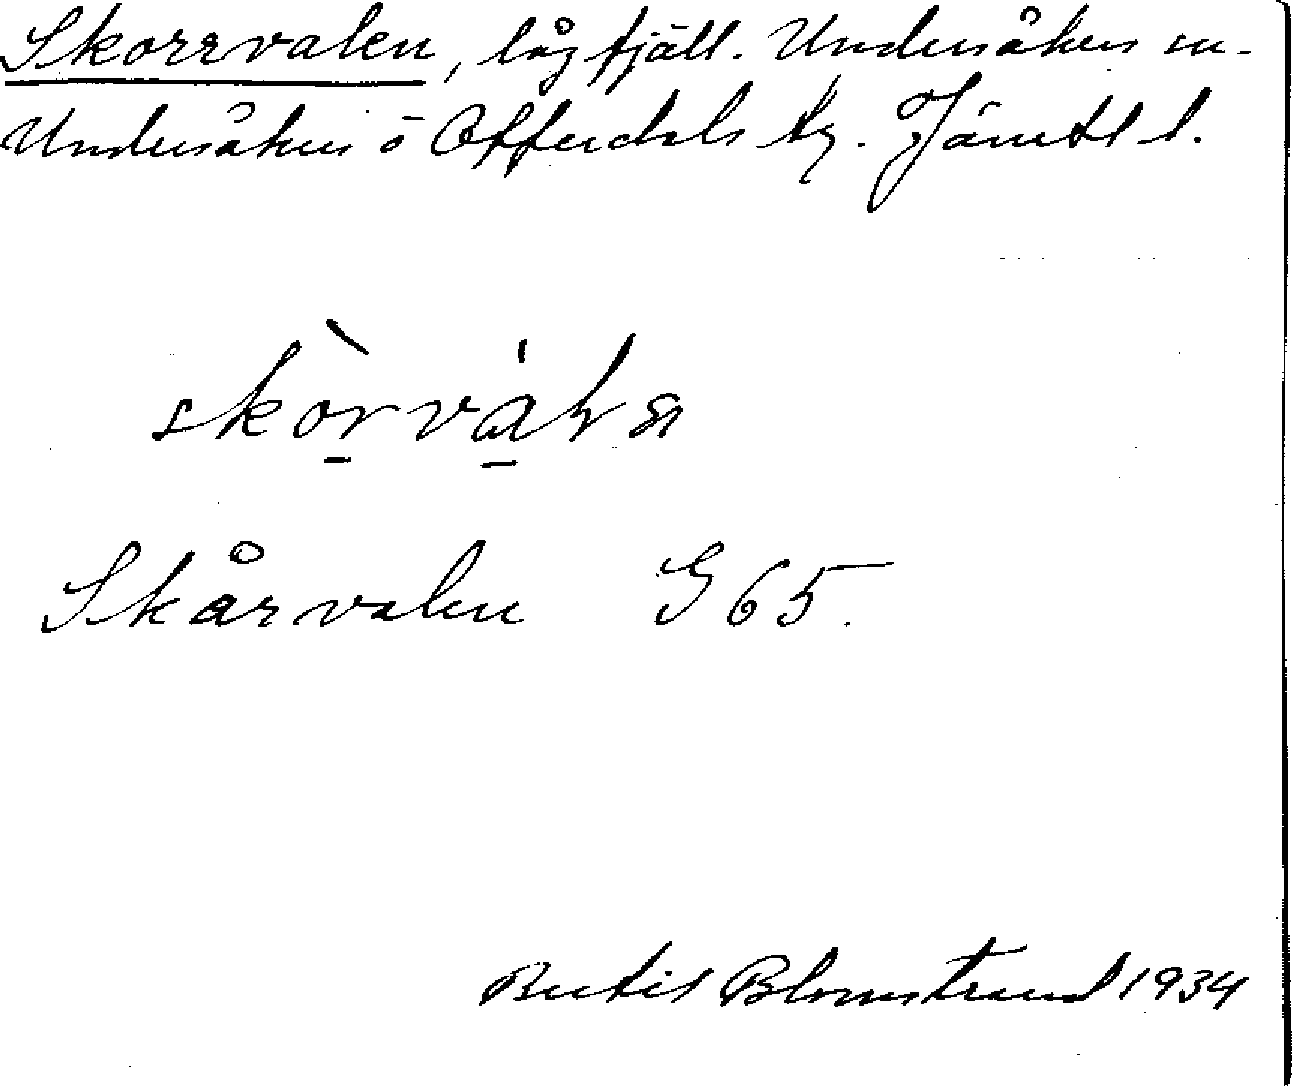 Skorrvalen, lågfjäll. Undersåkers sn.
Undersåkers o Offerdals tg. Jämtl l.
skòrvàḷn
Skårvalen G 65.
Bertil Blomstrand 1934